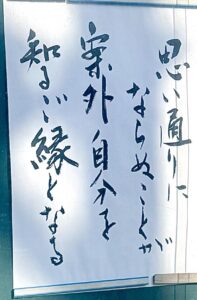 思い通りに
ならぬことが
案外自分を
知るいい縁となる